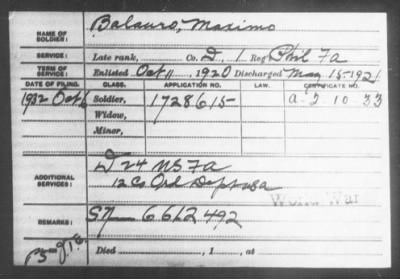 NAME OF SOLDIER: Balauro, Maximo
SERVICE: Late rank, Co. D, 1 Reg't Phil Fa
TERM OF SERVICE: Enlisted Oct 11, 1920 Discharged May 15-1921
DATE OF FILING. CLASS. APPLICATION NO. LAW. CERTIFICATE NO.
1932 Oct 6 Soldier, 1728615 a-5 10 33
Widow,
Minor,
D 24 US Fa
ADDITIONAL SERVICES: 12 Co Ord Dept usa
World War
REMARKS: 6612492
Died , 1 , at